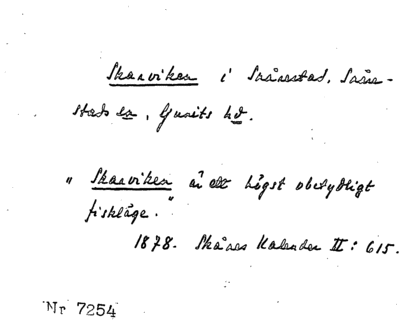 Skarviken i Snårestad, Snåre-
stads sn, Ljunits hd.
" Skarviken är ett högst obetydligt
fiskläge."
1878. Skånes Kalender II: 615.
Nr 7254